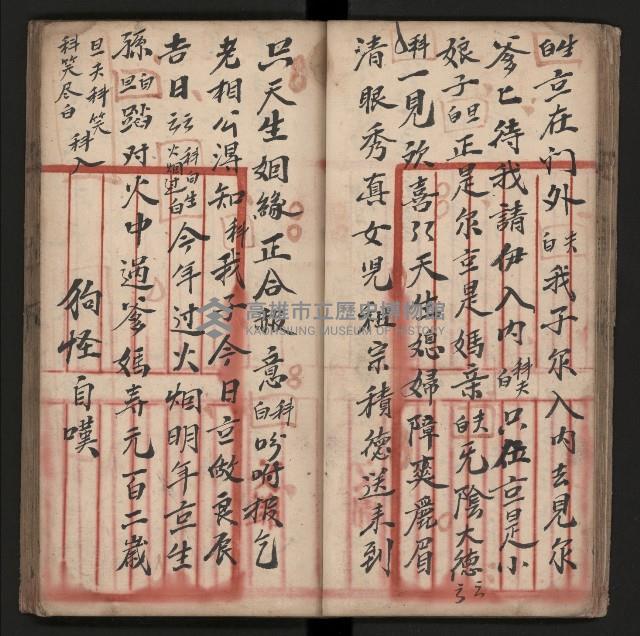 白生 京在门外 白夫 我子尔入内去見尔
爹 匕待我請伊入内 科夫白 只伍京是小
娘子 白旦 正是尔京是媽亲 白夫 旡陰大德云云
科 一見欢喜 天生媳婦障爽麗眉
清眼秀真女児 祖宗積德送来到
只天生姻緣正合報意 科白 吩咐报乞
老相公得知 科 我子今日京做良辰
吉日 云 科白生火烟过白 今年过火烟明年京生
孫 白旦 踏对火中過爹媽寿元百二歲
旦夫科笑 科入
科笑尽白
狗怪自嘆
高雄市立歷史博物館
KAOHSIUNG MUSEUM OF HISTORY